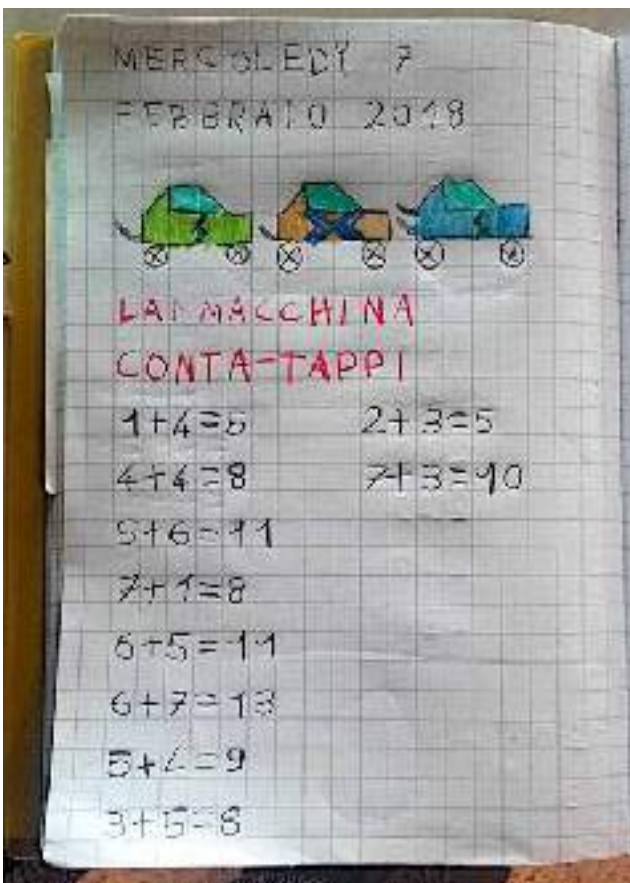 MERCOLEDÝ 7
FEBBRAIO 2018
LA MACCHINA
CONTA-TAPPI
1+4=5
4+4=8
5+6=11
7+1=8
6+5=11
6+7=13
5+4=9
3+5=8
2+3=5
7+3=10